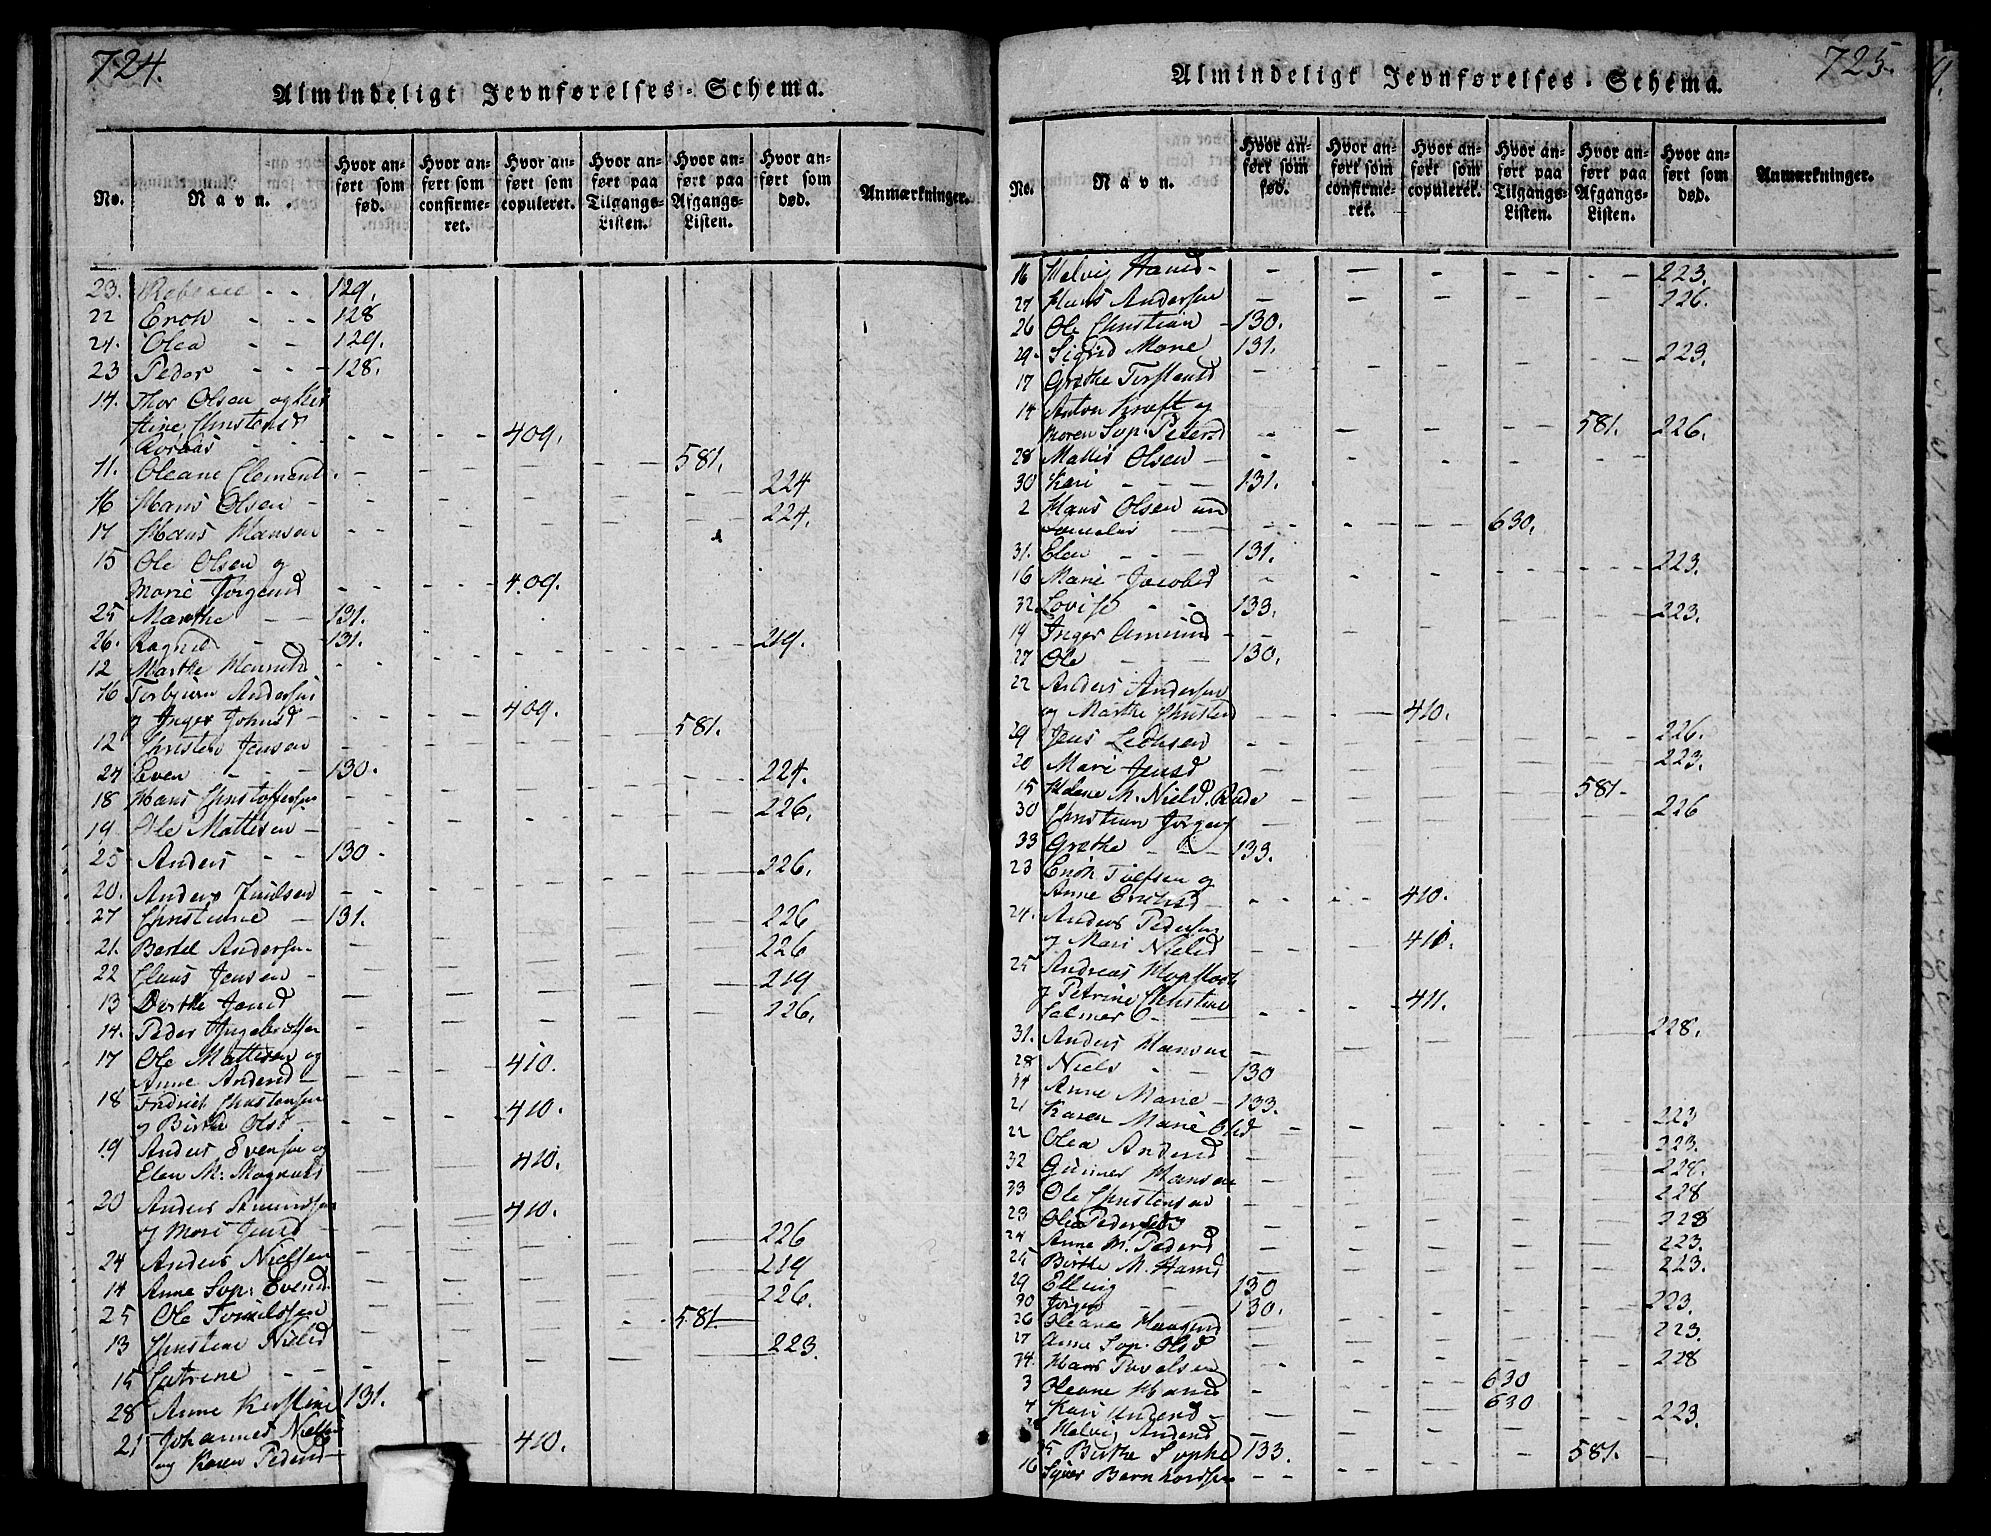 724.
Almindeligt Jevnførelses-Schema.
No.
Navn.
Hvor anført som fød.
Hvor anført som confirmeret.
Hvor anført som copuleret.
Hvor anført paa Tilgangs-Listen.
Hvor anført paa Afgangs-Listen.
Hvor anført som død.
Anmærkninger.
23. 129.
22 Erich - - - 128
24. Olea - - 129.
23 Peder - - - 128.
14. Thor Olsen og
- - - - 409.
11. Oleane Clement - - - - 581.
16 Hans Olsen - - - - - 224
17 Hans Hansen - - - - - 224.
15 Ole Olsen og
Marie Jørgensd - - - - 409.
25 Marthe - - 131.
26. Ragnild - 131.
12 Marthe Hansd - - - - - 219.
16 Torbjørn Andersen
og Inger Johnsd - - - - 409.
12 Christen Jensen - - - - 581.
24 Even - - - 130.
18 Hans Christoffersen - - - - 224.
19 Ole Mattisen - - - - - 226.
25 Anders - - 130 -
20. Anders - - - - - 226.
27 Christiane - 131.
21. Bertel Andersen - - - - - 226
22 Claus Jensen - - - - - 226
13 Berthe Jensd - - - - - 219
14. Peder Ingebretsen - - - - 226.
17 Ole Mattisen og
Anne Andersd - - - 410.
18 Fredrich Christensen
og Birthe Olsd - - - 410.
19 Anders Evensen og
Elen M: Magnusd 410.
20 Anders Amundsen
og Mari Jensd 410.
24 Anders Nielsen - - - - - 226
14 Anne Sop: Evensd - - - - 219
25 Ole - - - - 226.
13 Christine Nielsd - - - - 581.
15 Catrine - - - - - 223.
28 Anne Kirstine 131.
21 Johannes Nielsen
og Karen Pedersd - - 410.
725.
Almindeligt Jevnførelses-Schema.
No.
Navn.
Hvor anført som fød.
Hvor anført som confirmeret.
Hvor anført som copuleret.
Hvor anført paa Tilgangs-Listen.
Hvor anført paa Afgangs-Listen.
Hvor anført som død.
Anmærkninger.
16 Helvig Hansd - - - - - 223.
27 Hans Andersen - - - - - 226.
26 Ole Christian - 130.
29. Sigrid Marie 131.
17 Grethe Torstensd - - - - - 223.
14 Anton Kraft og
Maren Sop: Petersd - - - - 581.
28 Mattis Olsen - - - - - 226.
30 Kari - - - 131.
2 Hans Olsen
- - - - 630.
31. Elen - - - 131.
16 Marie Jacobsd - - - - - 223.
32 Lovise - - 133.
19 Inger Amunds - - - - - 223.
27 Ole - - - 130.
22 Anders Andersen
og Marthe Christensd - - 410.
29 Jens - - - - - 226.
20 Mari Jensd - - - - - 223.
15 Helene M. Nielsd. - - - - 581-
30 Christian Jørgens - - - - - 226
33 Grethe - - 133.
23 Erich
Anne Erichsd - - - - 410.
24. Anders Pedersen
og Mari Nielsd 410.
25 Andreas
og Petrine Christine
- - - 411.
31. Anders Hansen - - - - 228.
28 Niels - - 130
34 Anne Marie - 133.
21 Karen Marie Olsd - - - - 223
22 Olea Andersd - - - - 223.
32 Gunner Hansen - - - - 228.
33 Ole Christensen - - - - 228
23 Ole Pedersen - - - - 228
24 Anne M. Pedersd - - - - 223.
25 Birthe M. Hansd - - - - 223.
29 Elling - - 130
30 Jørgen - - 130.
26 Oleane - - - - 223.
27 Anne Sop: Olsd - - - - 223.
34. Hans - - - - - 228
3 Oleane Hansd - - - - 630
4 Kari Andersd - - - - 630
Helvig Andersd - - - - 223.
35 Birthe Sophie 133.
16 - - - - 581. -